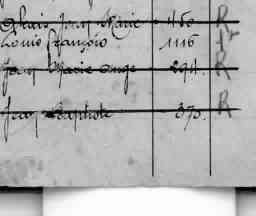 Jean Marie 1150 R
Louis François 1116
Jean Marie Ange 294. R
Jean Baptiste 375. R